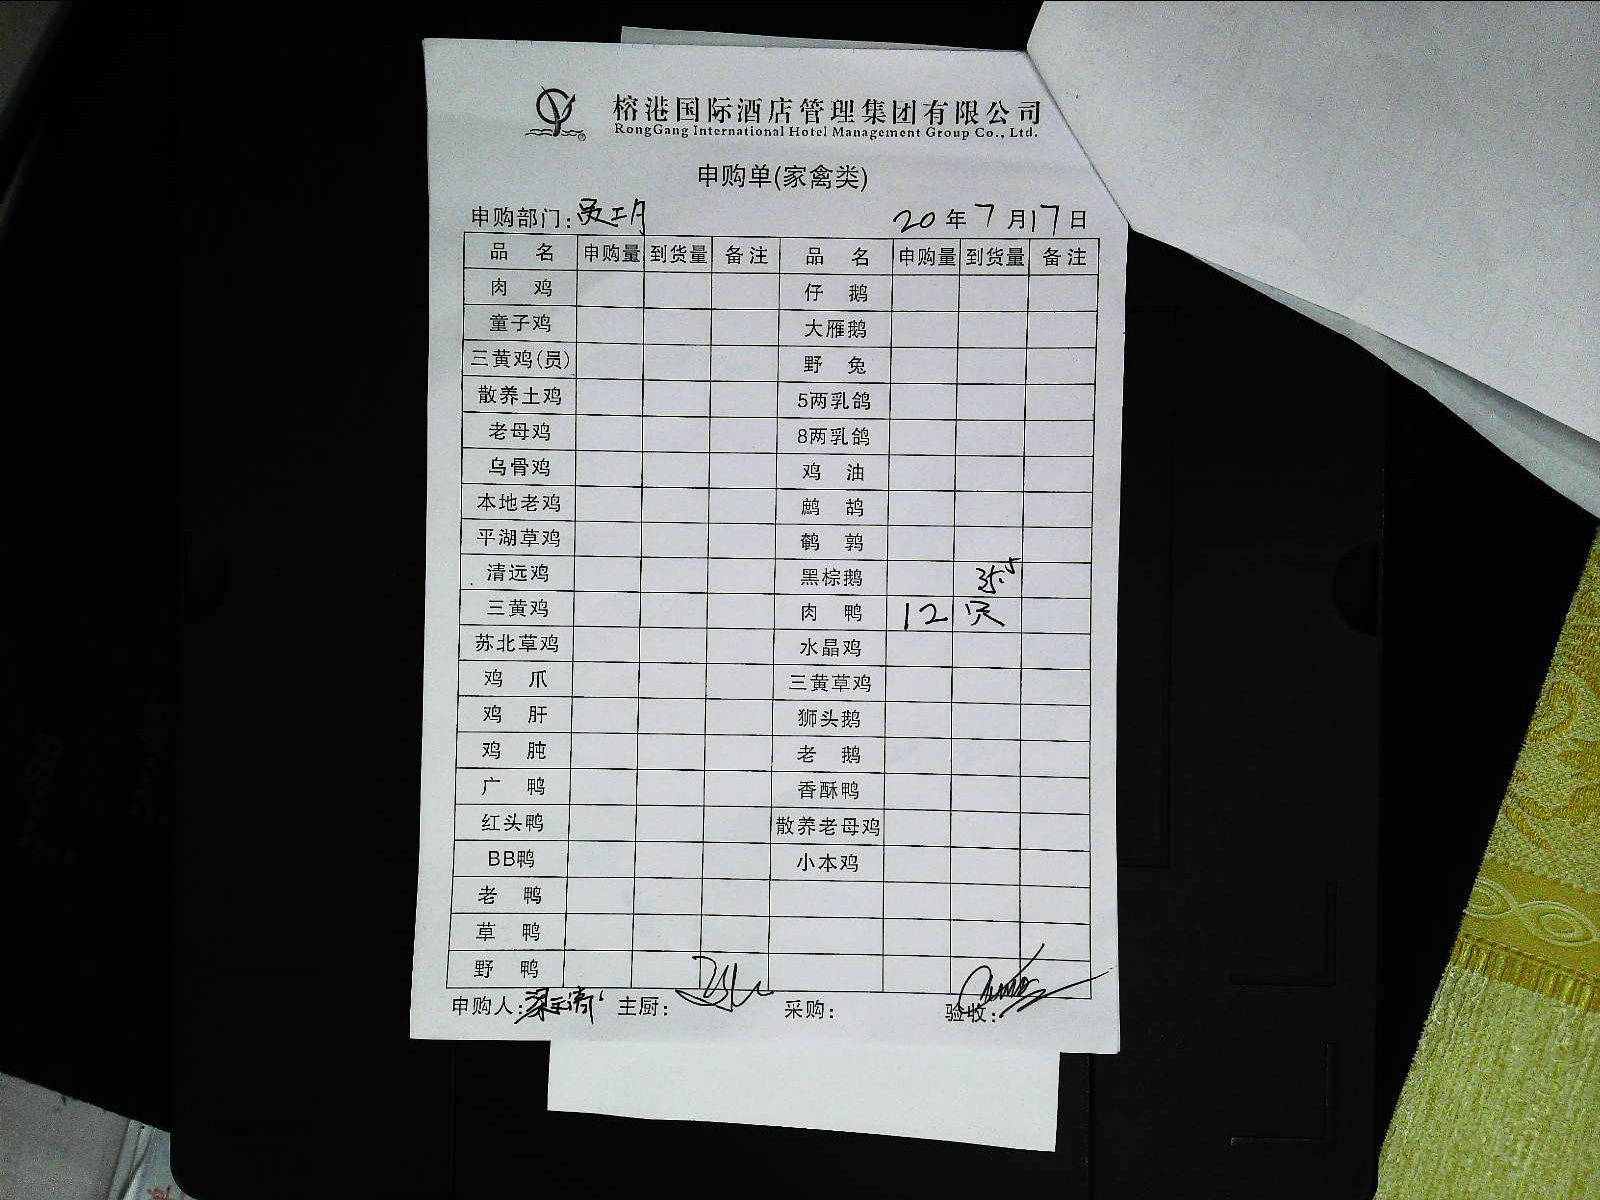 榕港国际酒店管理集团有限公司
RongGang International Hotel Management Group Co., Ltd.
申购单(家禽类)
申购部门: 员工 20年7月17日
品名 申购量 到货量 备注 品名 申购量 到货量 备注
肉鸡 仔鹅
童子鸡 大雁鹅
三黄鸡(员) 野兔
散养土鸡 5两乳鸽
老母鸡 8两乳鸽
乌骨鸡 鸡油
本地老鸡 鹧鸪
平湖草鸡 鹌鹑
清远鸡 黑棕鹅
三黄鸡 肉鸭 12只 35.5
苏北草鸡 水晶鸡
鸡爪 三黄草鸡
鸡肝 狮头鹅
鸡肫 老鹅
广鸭 香酥鸭
红头鸭 散养老母鸡
BB鸭 小本鸡
老鸭
草鸭
野鸭
申购人: 主厨: 采购: 验收: